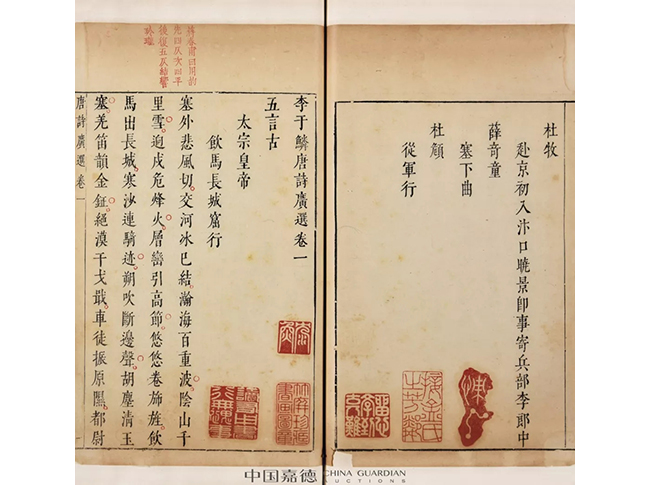 杜牧
赴京初入汴口曉景即事寄兵部李郎中
薛奇童
塞下曲
杜頠
從軍行
李于鱗唐詩廣選卷一
五言古
太宗皇帝
飲馬長城窟行
塞外悲風切交河冰巳結瀚海百重波陰山千
里雪迥戍危烽火層巒引高節悠悠卷斾旌飲
馬出長城寒沙連騎迹朔吹斷邊聲胡塵清玉
塞羌笛韻金鉦絕漠干戈戢車徒振原隰都尉
唐詩廣選卷一
中国嘉德
CHINA GUARDIAN
AUCTIONS